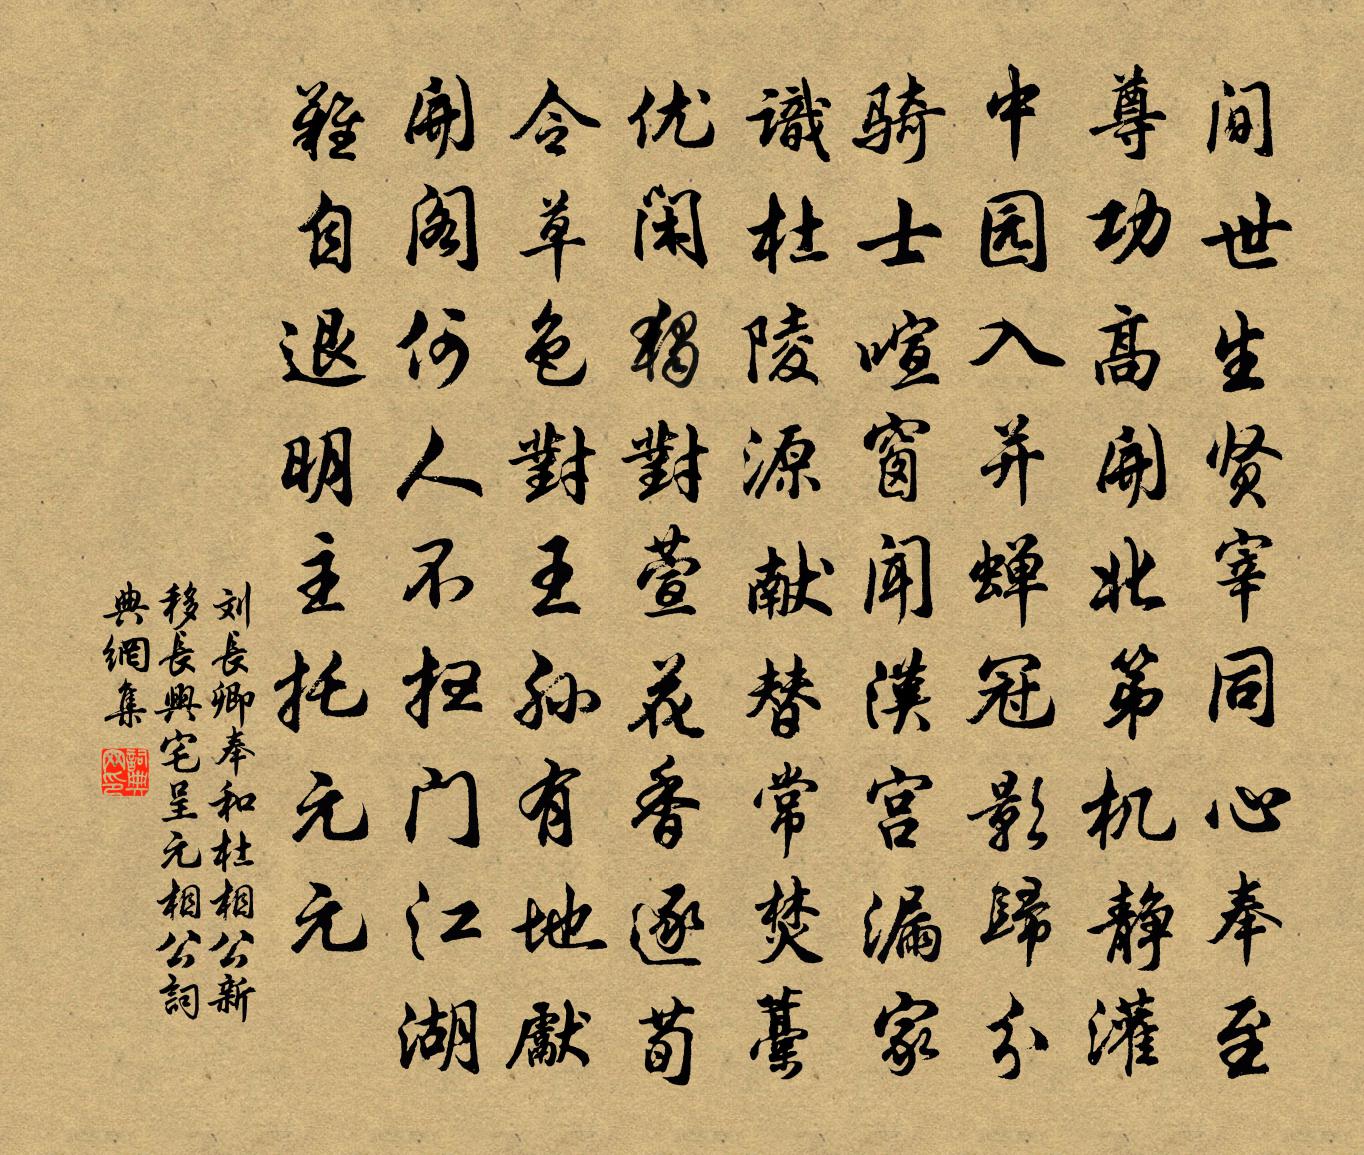 间世生贤宰同心奉至
尊功高開北第机静灌
中园入并蝉冠影歸分
骑士喧窗闻漢宫漏家
識杜陵源献替常焚藁
优闲獨對萱花香逐荀
令草色對王孙有地獻
開阁何人不扫门江湖
難自退明主托元元
刘長卿奉和杜相公新
移長興宅呈元相公詞
典網集
詞典
网印